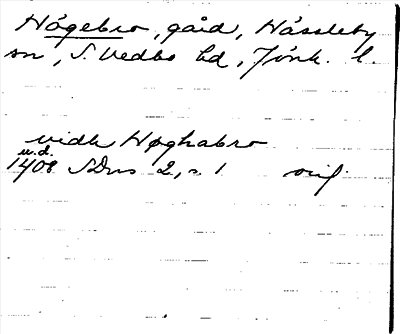 Högebro, gård, Hässleby
sn, S. Vedbo hd, Jönk. l.
vidh Høghabro
u.d.
1408 SDns 2, s. 1 orig.